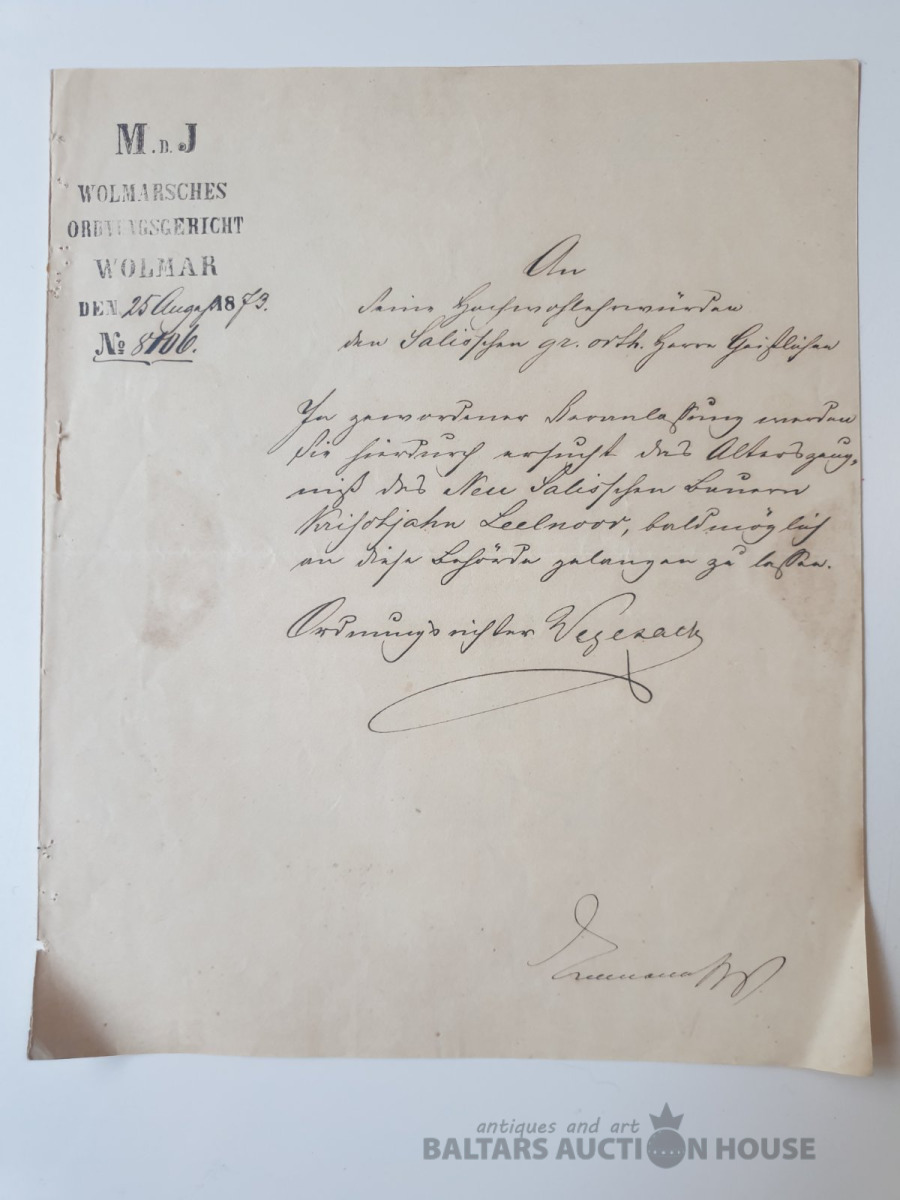 M. D. J
WOLMARSCHES
ORDNUNGSGERICHT
WOLMAR
DEN 25 August 1873.
№ 8106.
An
Seine Hochwohlehrwürden
den Salisschen gr. orth. Herrn Geistlichen
In gewordener Veranlassung werden
Sie hierdurch ersucht das Alterszeug-
niß des Neu Salisschen Bauern
Krisch Jahn Leelnoor, baldmöglich
an diese Behörde gelangen zu lassen.
Ordnungsrichter Vegesack
antiques and art
BALTARS AUCTION HOUSE